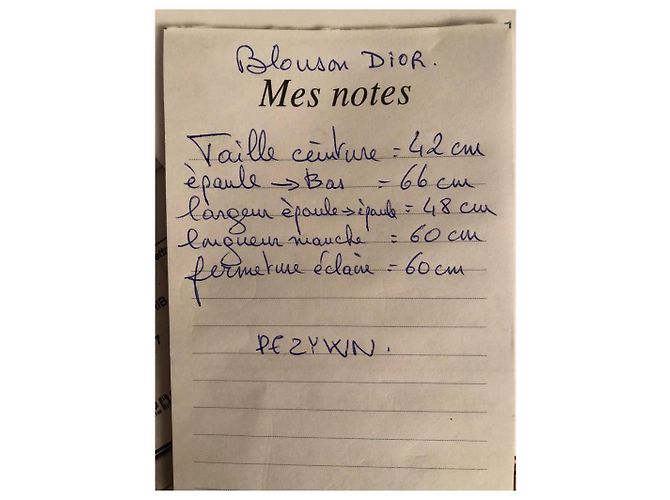 Blouson DIOR.
Mes notes
Taille ceinture = 42 cm
épaule → Bas = 66 cm
largeur épaule → épaule = 48 cm
longueur manche = 60 cm
fermeture éclaire = 60 cm
PEZYWN.